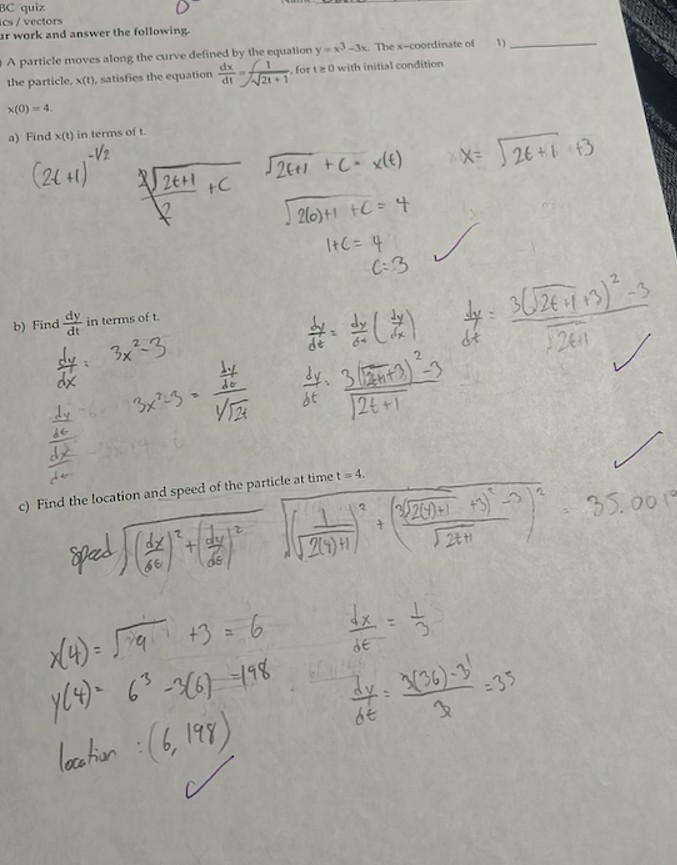 BC quiz
ics / vectors
ur work and answer the following.
A particle moves along the curve defined by the equation y = x³ -3x. The x-coordinate of 1)
the particle, x(t), satisfies the equation dx/dt = 1/√(2t + 1), for t ≥ 0 with initial condition
x(0) = 4.
a) Find x(t) in terms of t.
(2t +1)^-1/2
2√(2t+1)/2 + C
√(2t+1) + C = x(t)
√(2(0)+1) + C = 4
1+C = 4
C=3
x = √(2t+1) +3
b) Find dy/dt in terms of t.
dy/dx = 3x²-3
3x²-3 = (dy/dt)/(1/√2t)
dy/dt = 3(√(2t+1)+3)²-3/√(2t+1)
dy/dt = 3(√(2t+1)+3)²-3/√(2t+1)
c) Find the location and speed of the particle at time t = 4.
speed √((dx/dt)² + (dy/dt)²)
√((1/√(2(4)+1))² + (3(√(2(4)+1) +3)²-3/√(2t+1))²) = 35.001
x(4) = √9 +3 = 6
y(4) = 6³ -3(6) = 198
location : (6, 198)
dx/dt = 1/3
dy/dt = 3(36)-3/3 = 35